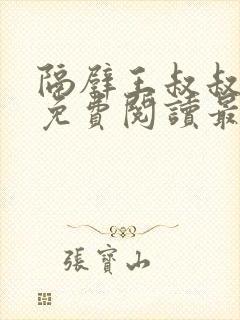 隔壁王叔叔
免費閱讀最
張寶山